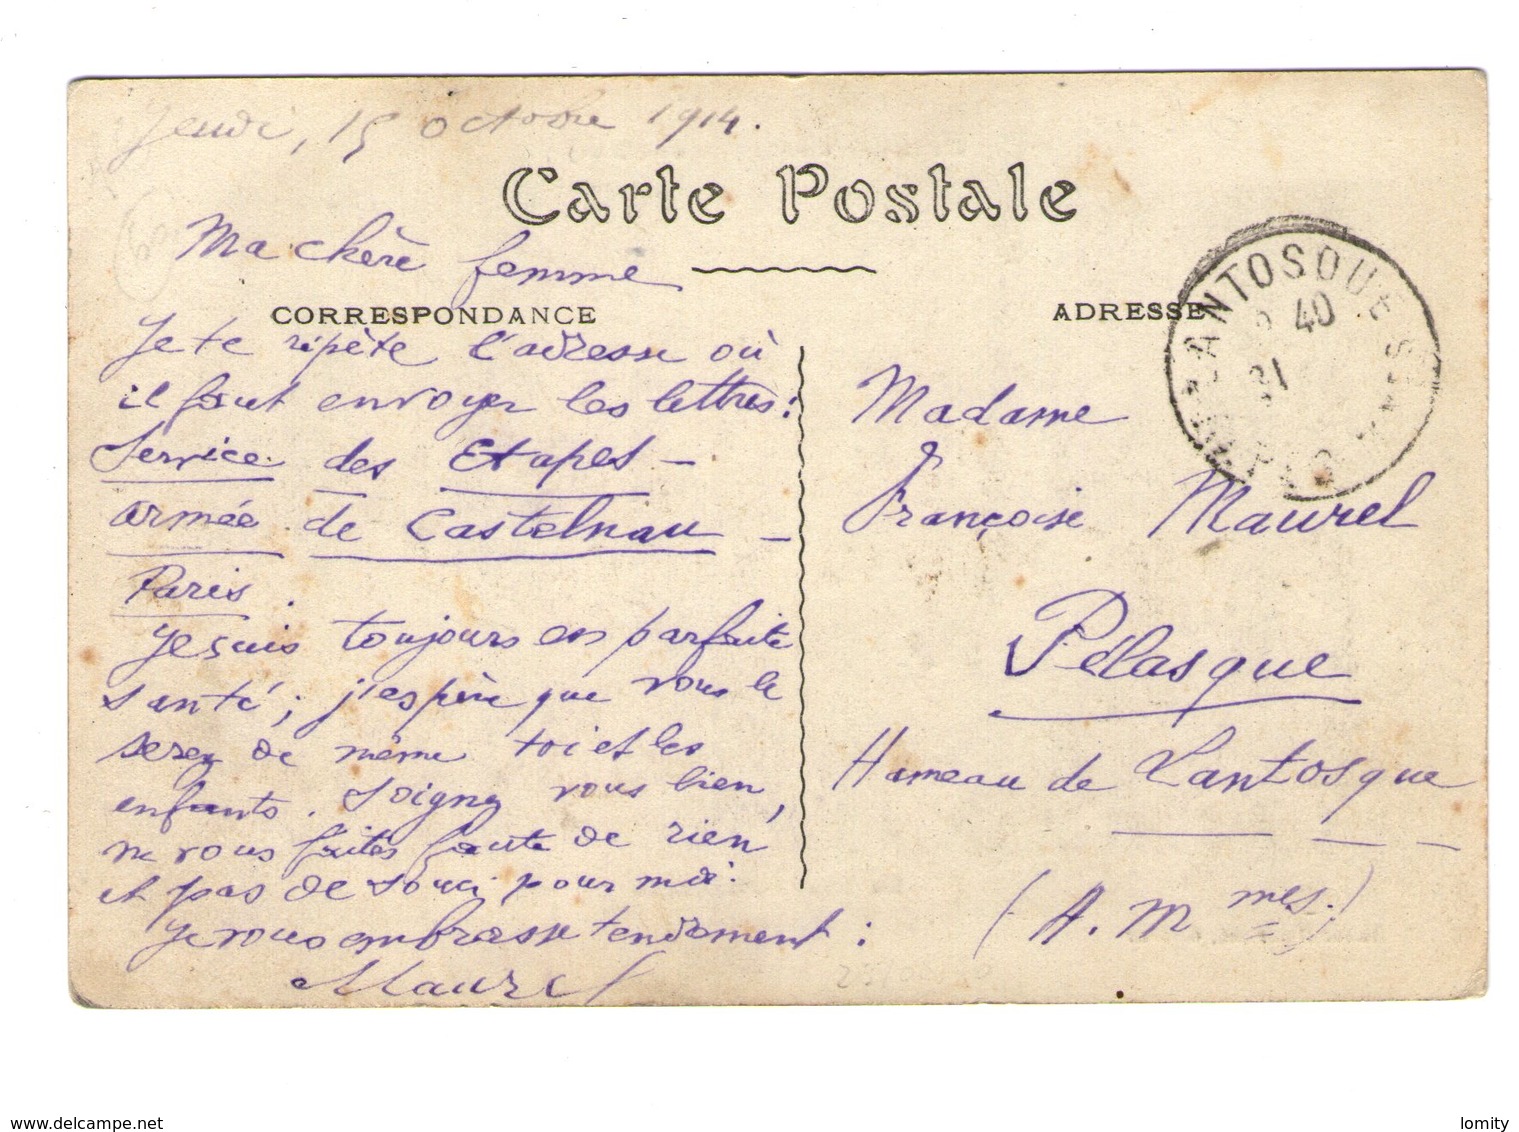 Jeudi, 15 octobre 1914.
Carte Postale
Ma chère femme
CORRESPONDANCE
Je te répète l'adresse où
il faut envoyer les lettres:
Service des Etapes -
armée de Castelnau -
Paris.
Je suis toujours en parfaite
santé; j'espère que vous le
serez de même toi et les
enfants. Soignez vous bien,
ne vous faites faute de rien
et pas de souci pour moi.
Je vous embrasse tendrement:
Maurel
ADRESSE
Madame
Françoise Maurel
Pélasque
Hameau de Lantosque
(A. M mes.)
LANTOSQUE
40
31
delcampe.net
lomity